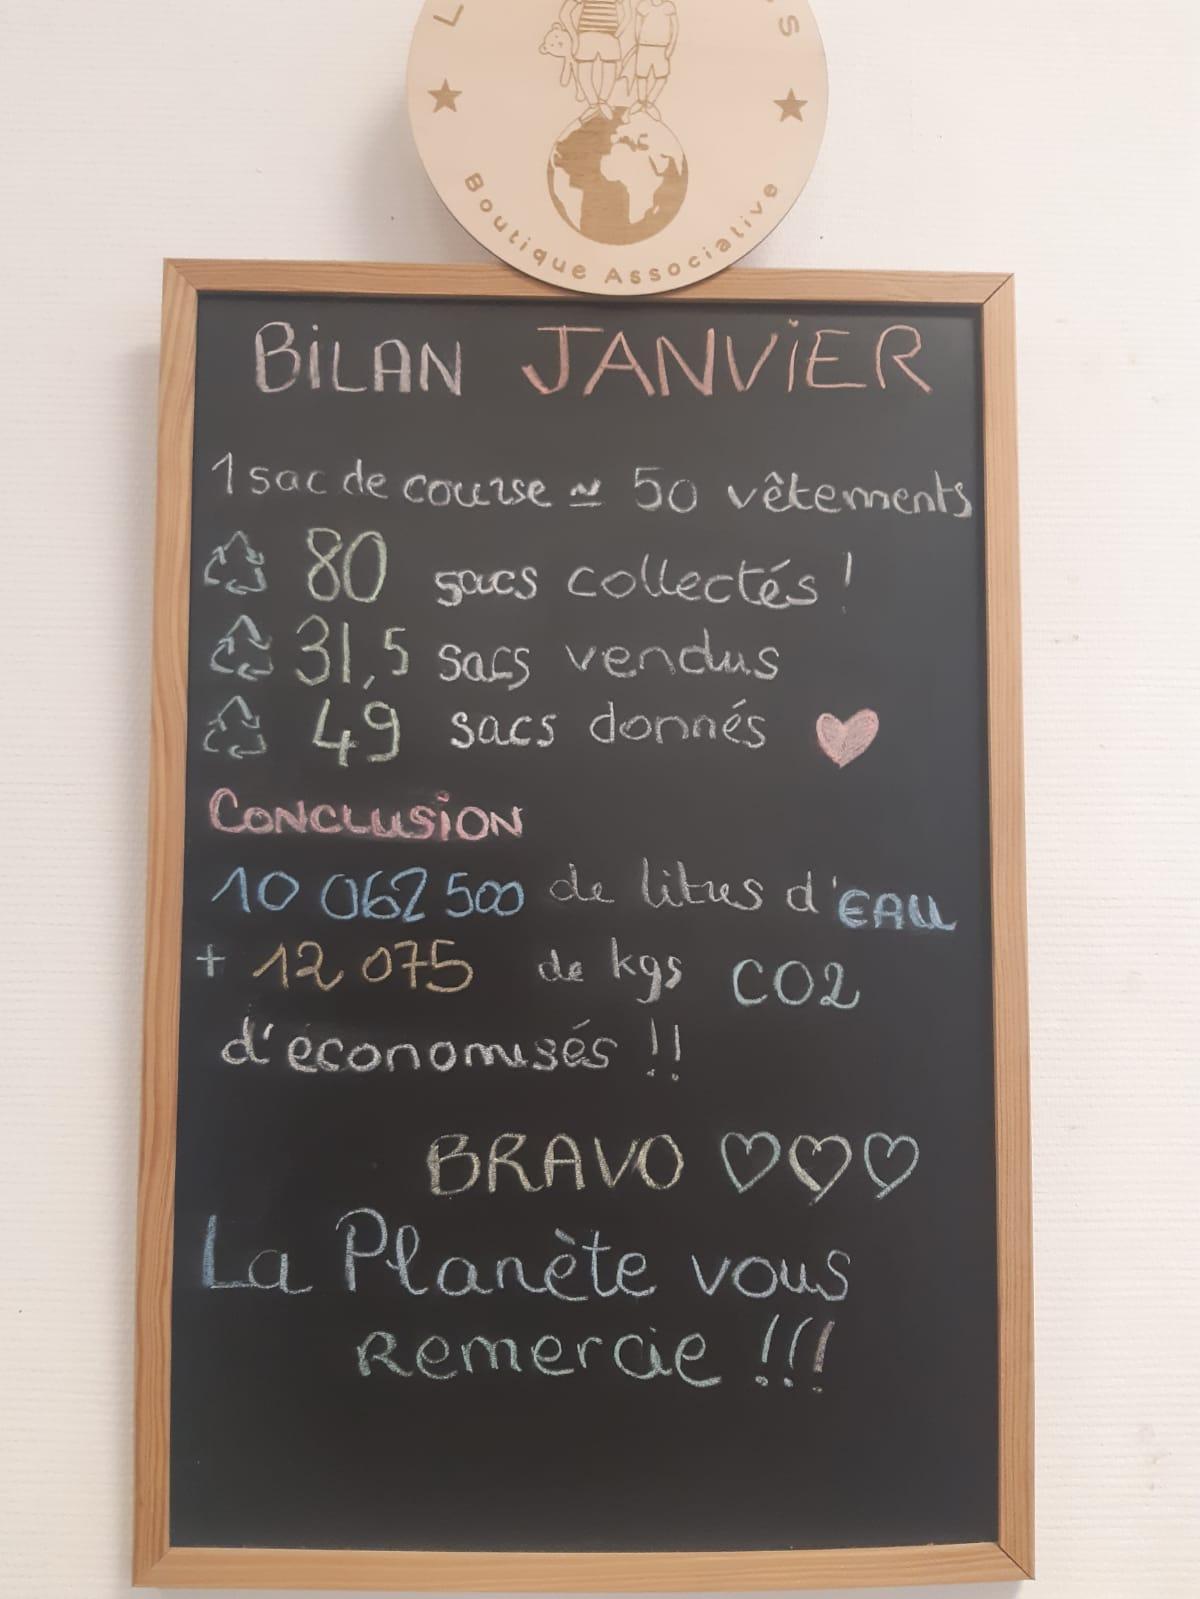 Boutique Associative
BiLAN JANViER
1 sac de course ≃ 50 vêtements
80 sacs collectés !
31,5 sacs vendus
49 sacs donnés
CONCLUSiON
10 062 500 de litres d'EAU
+ 12 075 de kgs CO2
d'économisés !!
BRAVO ♡♡♡
La Planète vous
Remercie !!!